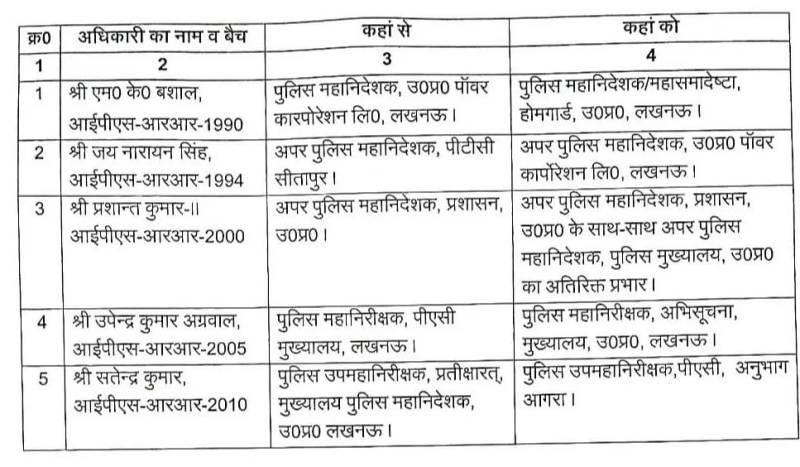 क्र0 अधिकारी का नाम व बैच कहां से कहां को
1 2 3 4
1 श्री एम0 के0 बशाल, पुलिस महानिदेशक, उ0प्र0 पॉवर पुलिस महानिदेशक/महासमादेष्टा,
आईपीएस-आरआर-1990 कारपोरेशन लि0, लखनऊ। होमगार्ड, उ0प्र0, लखनऊ।
2 श्री जय नारायन सिंह, अपर पुलिस महानिदेशक, पीटीसी अपर पुलिस महानिदेशक, उ0प्र0 पॉवर
आईपीएस-आरआर-1994 सीतापुर। कार्पोरेशन लि0, लखनऊ।
3 श्री प्रशान्त कुमार-II अपर पुलिस महानिदेशक, प्रशासन, अपर पुलिस महानिदेशक, प्रशासन,
आईपीएस-आरआर-2000 उ0प्र0। उ0प्र0 के साथ-साथ अपर पुलिस
महानिदेशक, पुलिस मुख्यालय, उ0प्र0
का अतिरिक्त प्रभार।
4 श्री उपेन्द्र कुमार अग्रवाल, पुलिस महानिरीक्षक, पीएसी पुलिस महानिरीक्षक, अभिसूचना,
आईपीएस-आरआर-2005 मुख्यालय, लखनऊ। मुख्यालय, उ0प्र0, लखनऊ।
5 श्री सतेन्द्र कुमार, पुलिस उपमहानिरीक्षक, प्रतीक्षारत्, पुलिस उपमहानिरीक्षक,पीएसी, अनुभाग
आईपीएस-आरआर-2010 मुख्यालय पुलिस महानिदेशक, आगरा।
उ0प्र0 लखनऊ।